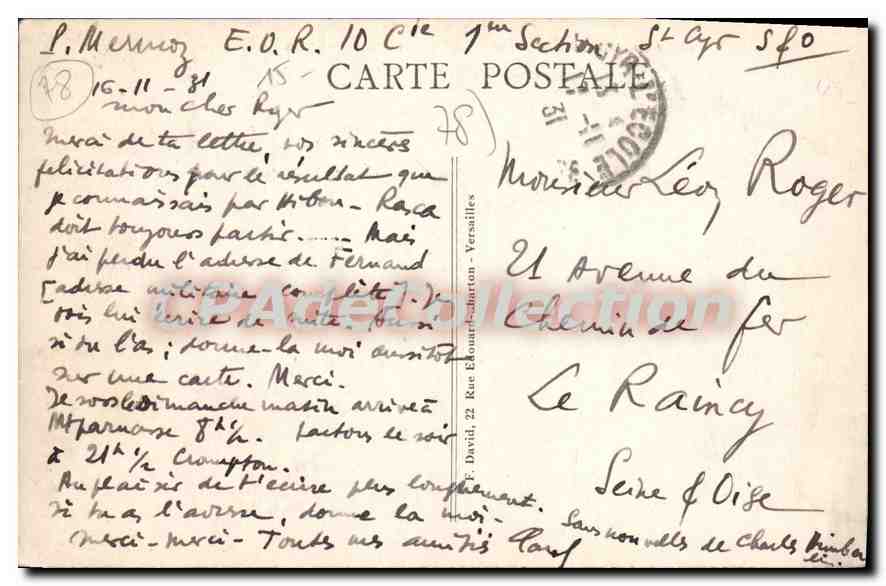 P. Mermoz E.O.R. 10 Cie 1re Section St Cyr S&O
78 16-11-31 15-
CARTE POSTALE
mon cher Roger
78
Merci de ta lettre, sincères
felicitations pour le résultat que
je connaissais par
doit toujours partir. Mais
j'ai perdu l'adresse de Fernand
[adresse militaire complète]. Je
vais lui écrire de suite. Aussi
si tu l'as ; donne-la moi aussitôt
sur une carte. Merci.
Je dimanche matin arrive à
Mtparnasse 8h 1/2. le soir
à 21h 1/2
Au plaisir de t'écrire plus longuement.
si tu as l'adresse, donne la moi-
merci-merci- Toutes mes amitiés
F. David, 22 Rue Edouard-Charton - Versailles
Monsieur Roger
21 Avenue du
Chemin de fer
Le Raincy
Seine & Oise
Sans nouvelles de Charles
CPArteCollection